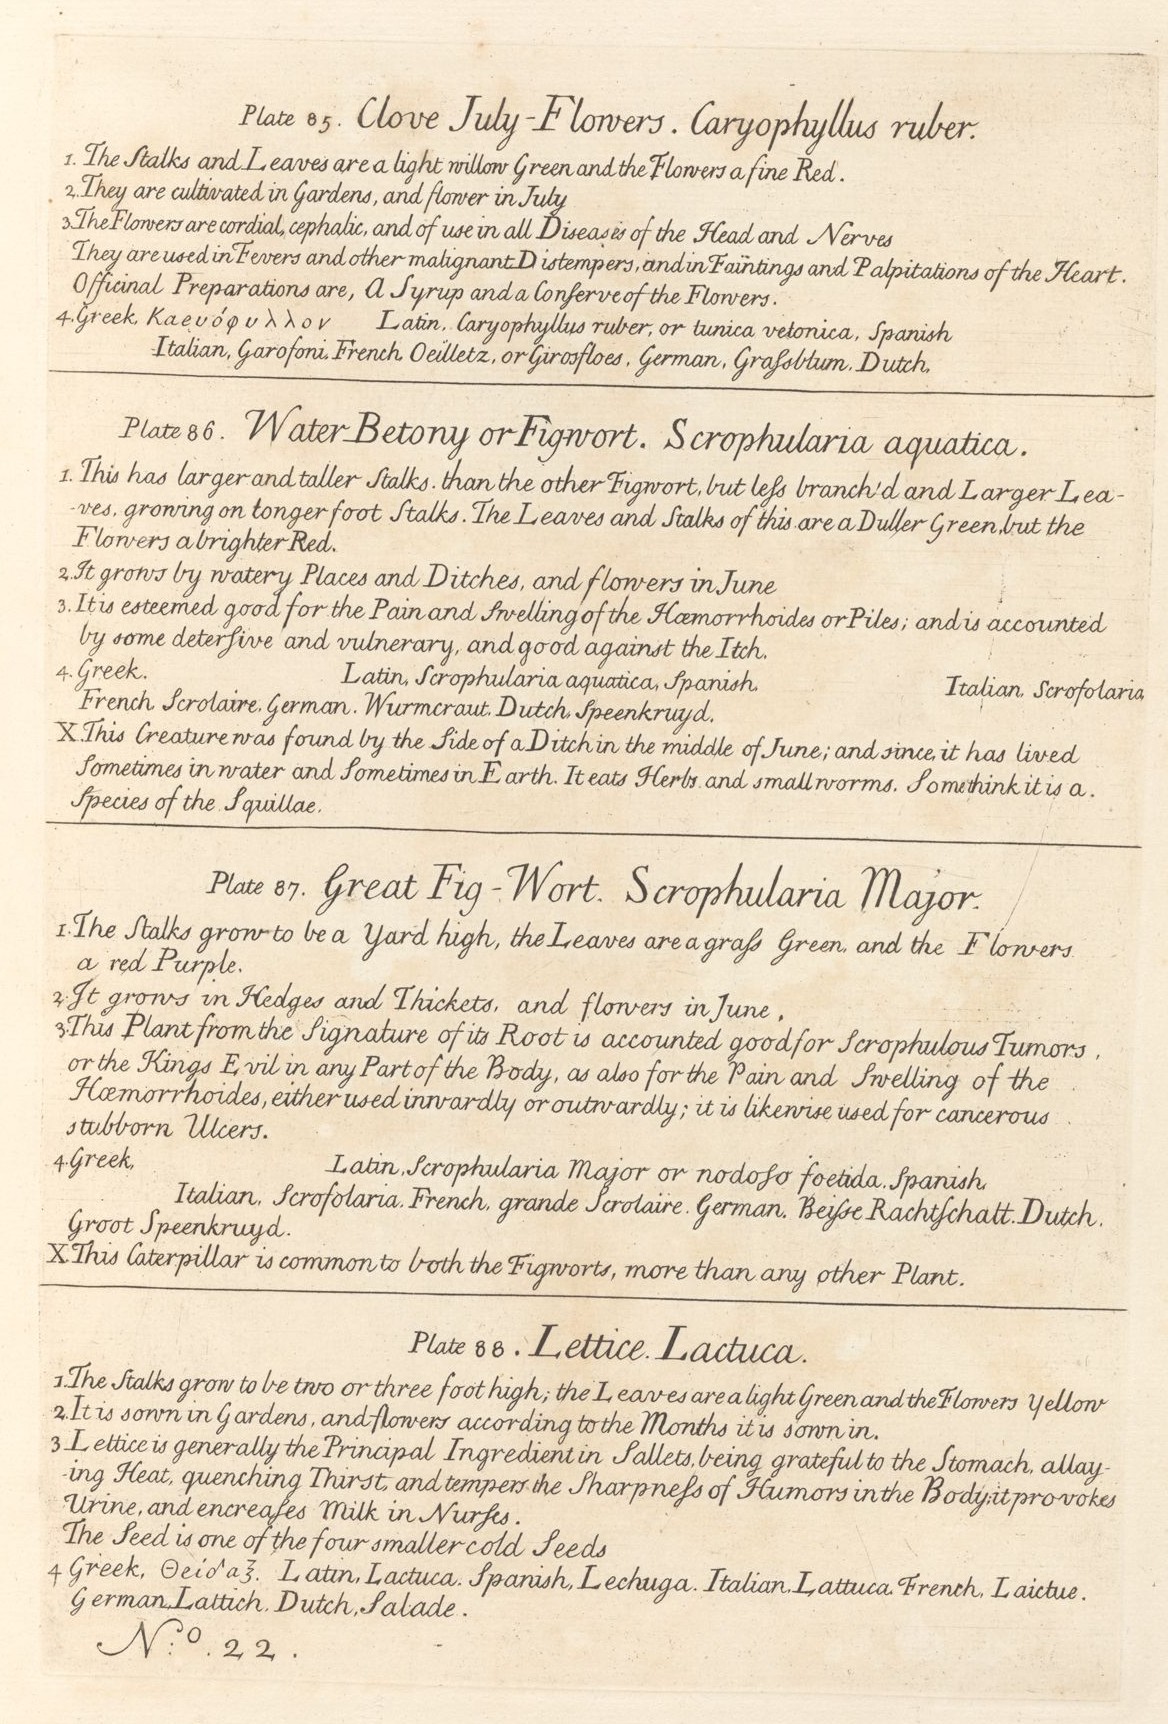 Plate 85. Clove July-Flowers. Caryophyllus ruber.
1. The Stalks and Leaves are a light willow Green and the Flowers a fine Red.
2. They are cultivated in Gardens, and flower in July
3. The Flowers are cordial, cephalic, and of use in all Diseases of the Head and Nerves
They are used in Fevers and other malignant Distempers, and in Faintings and Palpitations of the Heart.
Officinal Preparations are, A Syrup and a Conſerve of the Flowers.
4. Greek, Καευόφυλλον Latin, Caryophyllus ruber, or tunica vetonica, Spanish
Italian, Garofoni, French Oeilletz, or Girosfloes, German, Graſsblum. Dutch,
Plate 86. Water Betony or Figwort. Scrophularia aquatica.
1. This has larger and taller Stalks. than the other Figwort, but leſs branch'd and Larger Lea-
-ves, growing on longer foot Stalks. The Leaves and Stalks of this are a Duller Green, but the
Flowers a brighter Red.
2. It grows by watery Places and Ditches, and flowers in June
3. It is esteemed good for the Pain and Swelling of the Hæmorrhoides or Piles; and is accounted
by some deterſive and vulnerary, and good against the Itch.
4. Greek. Latin, Scrophularia aquatica, Spanish, Italian, Scrofolaria
French Scrolaire. German. Wurmcraut. Dutch, Speenkruyd.
X. This Creature was found by the Side of a Ditch in the middle of June; and since, it has lived
Sometimes in water and Sometimes in Earth. It eats Herbs and small worms. Some think it is a
Species of the Squillae.
Plate 87. Great Fig-Wort. Scrophularia Major.
1. The Stalks grow to be a Yard high, the Leaves are a graſs Green, and the Flowers
a red Purple.
2. It grows in Hedges and Thickets, and flowers in June,
3. This Plant from the Signature of its Root is accounted good for Scrophulous Tumors,
or the Kings Evil in any Part of the Body, as also for the Pain and Swelling of the
Hæmorrhoides, either used inwardly or outwardly; it is likewise used for cancerous
stubborn Ulcers.
4. Greek, Latin, Scrophularia Major or nodoſo foetida. Spanish,
Italian, Scrofolaria. French, grande Scrolaire. German, Beiſse Rachtſchatt. Dutch,
Groot Speenkruyd.
X. This Caterpillar is common to both the Figworts, more than any other Plant.
Plate 88. Lettice. Lactuca.
1. The Stalks grow to be two or three foot high; the Leaves are a light Green and the Flowers Yellow
2. It is sown in Gardens, and flowers according to the Months it is sown in.
3. Lettice is generally the Principal Ingredient in Sallets, being grateful to the Stomach, allay-
-ing Heat, quenching Thirst, and tempers the Sharpneſs of Humors in the Body; it provokes
Urine, and encreaſes Milk in Nurſes.
The Seed is one of the four smaller cold Seeds
4 Greek, Θείδαξ. Latin, Lactuca. Spanish, Lechuga. Italian, Lattuca. French, Laictue.
German, Lattich, Dutch, Salade.
N:º. 22.